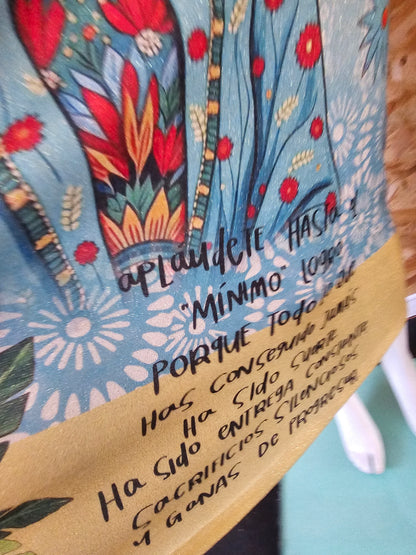 aplaudete HASTA t
"MÍNIMO" LOGRO
PORQUE TODO lo que
Has conseguido jamás
Ha sido suerte
Ha sido entrega constante
sacrificios silenciosos
y ganas de progresar